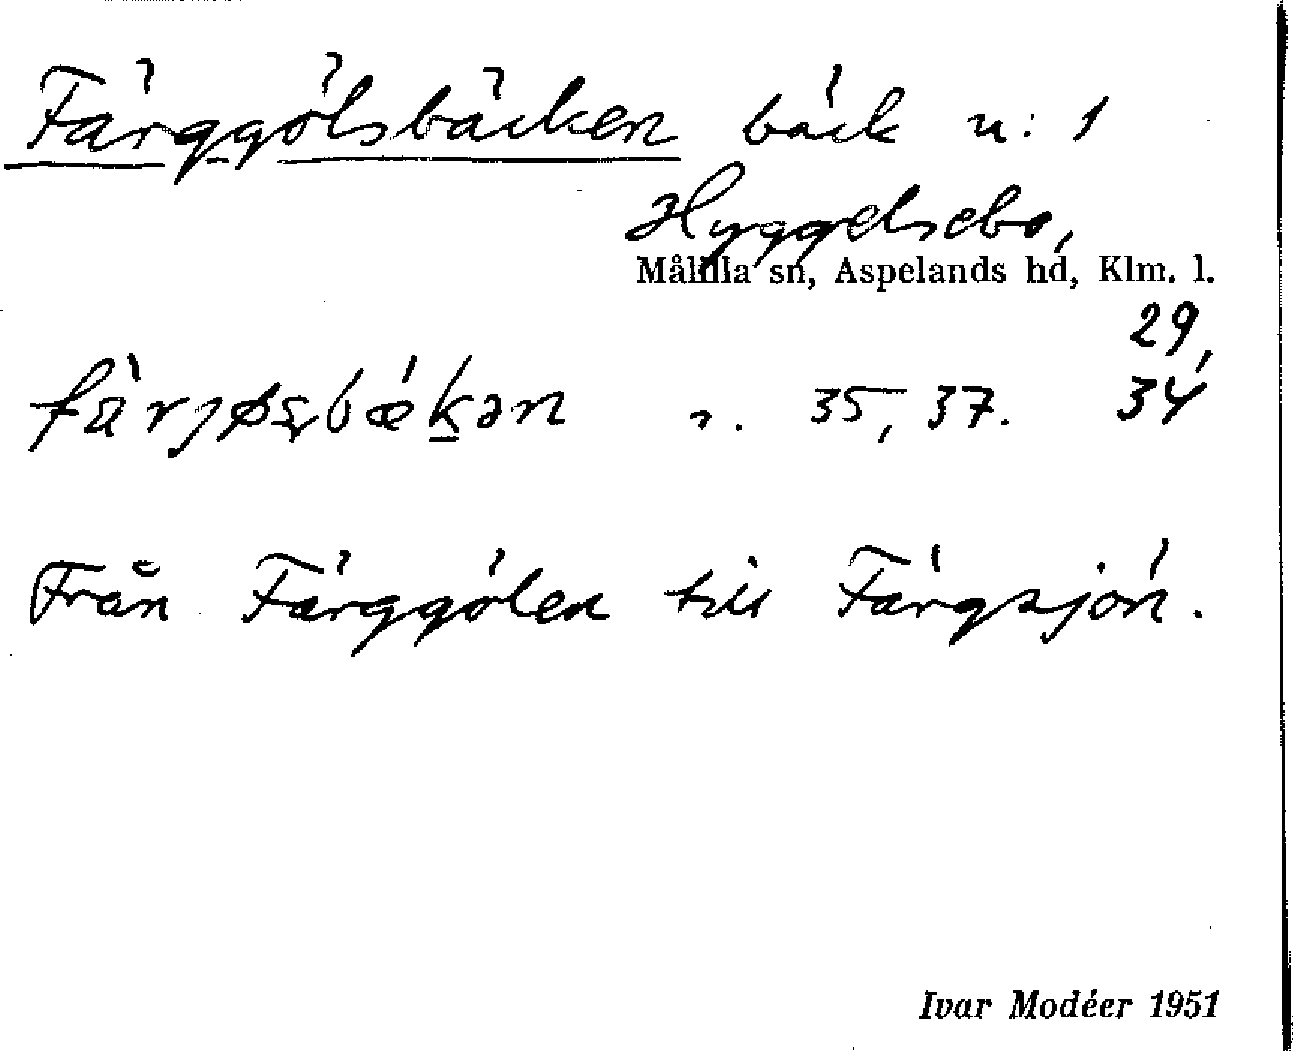 Färggölsbäcken bäck n: 1
Hyggelsebo,
Målilla sn, Aspelands hd, Klm. l.
29,
s. 35, 37. 34
Från Färggölen till Färgsjön.
Ivar Modéer 1951